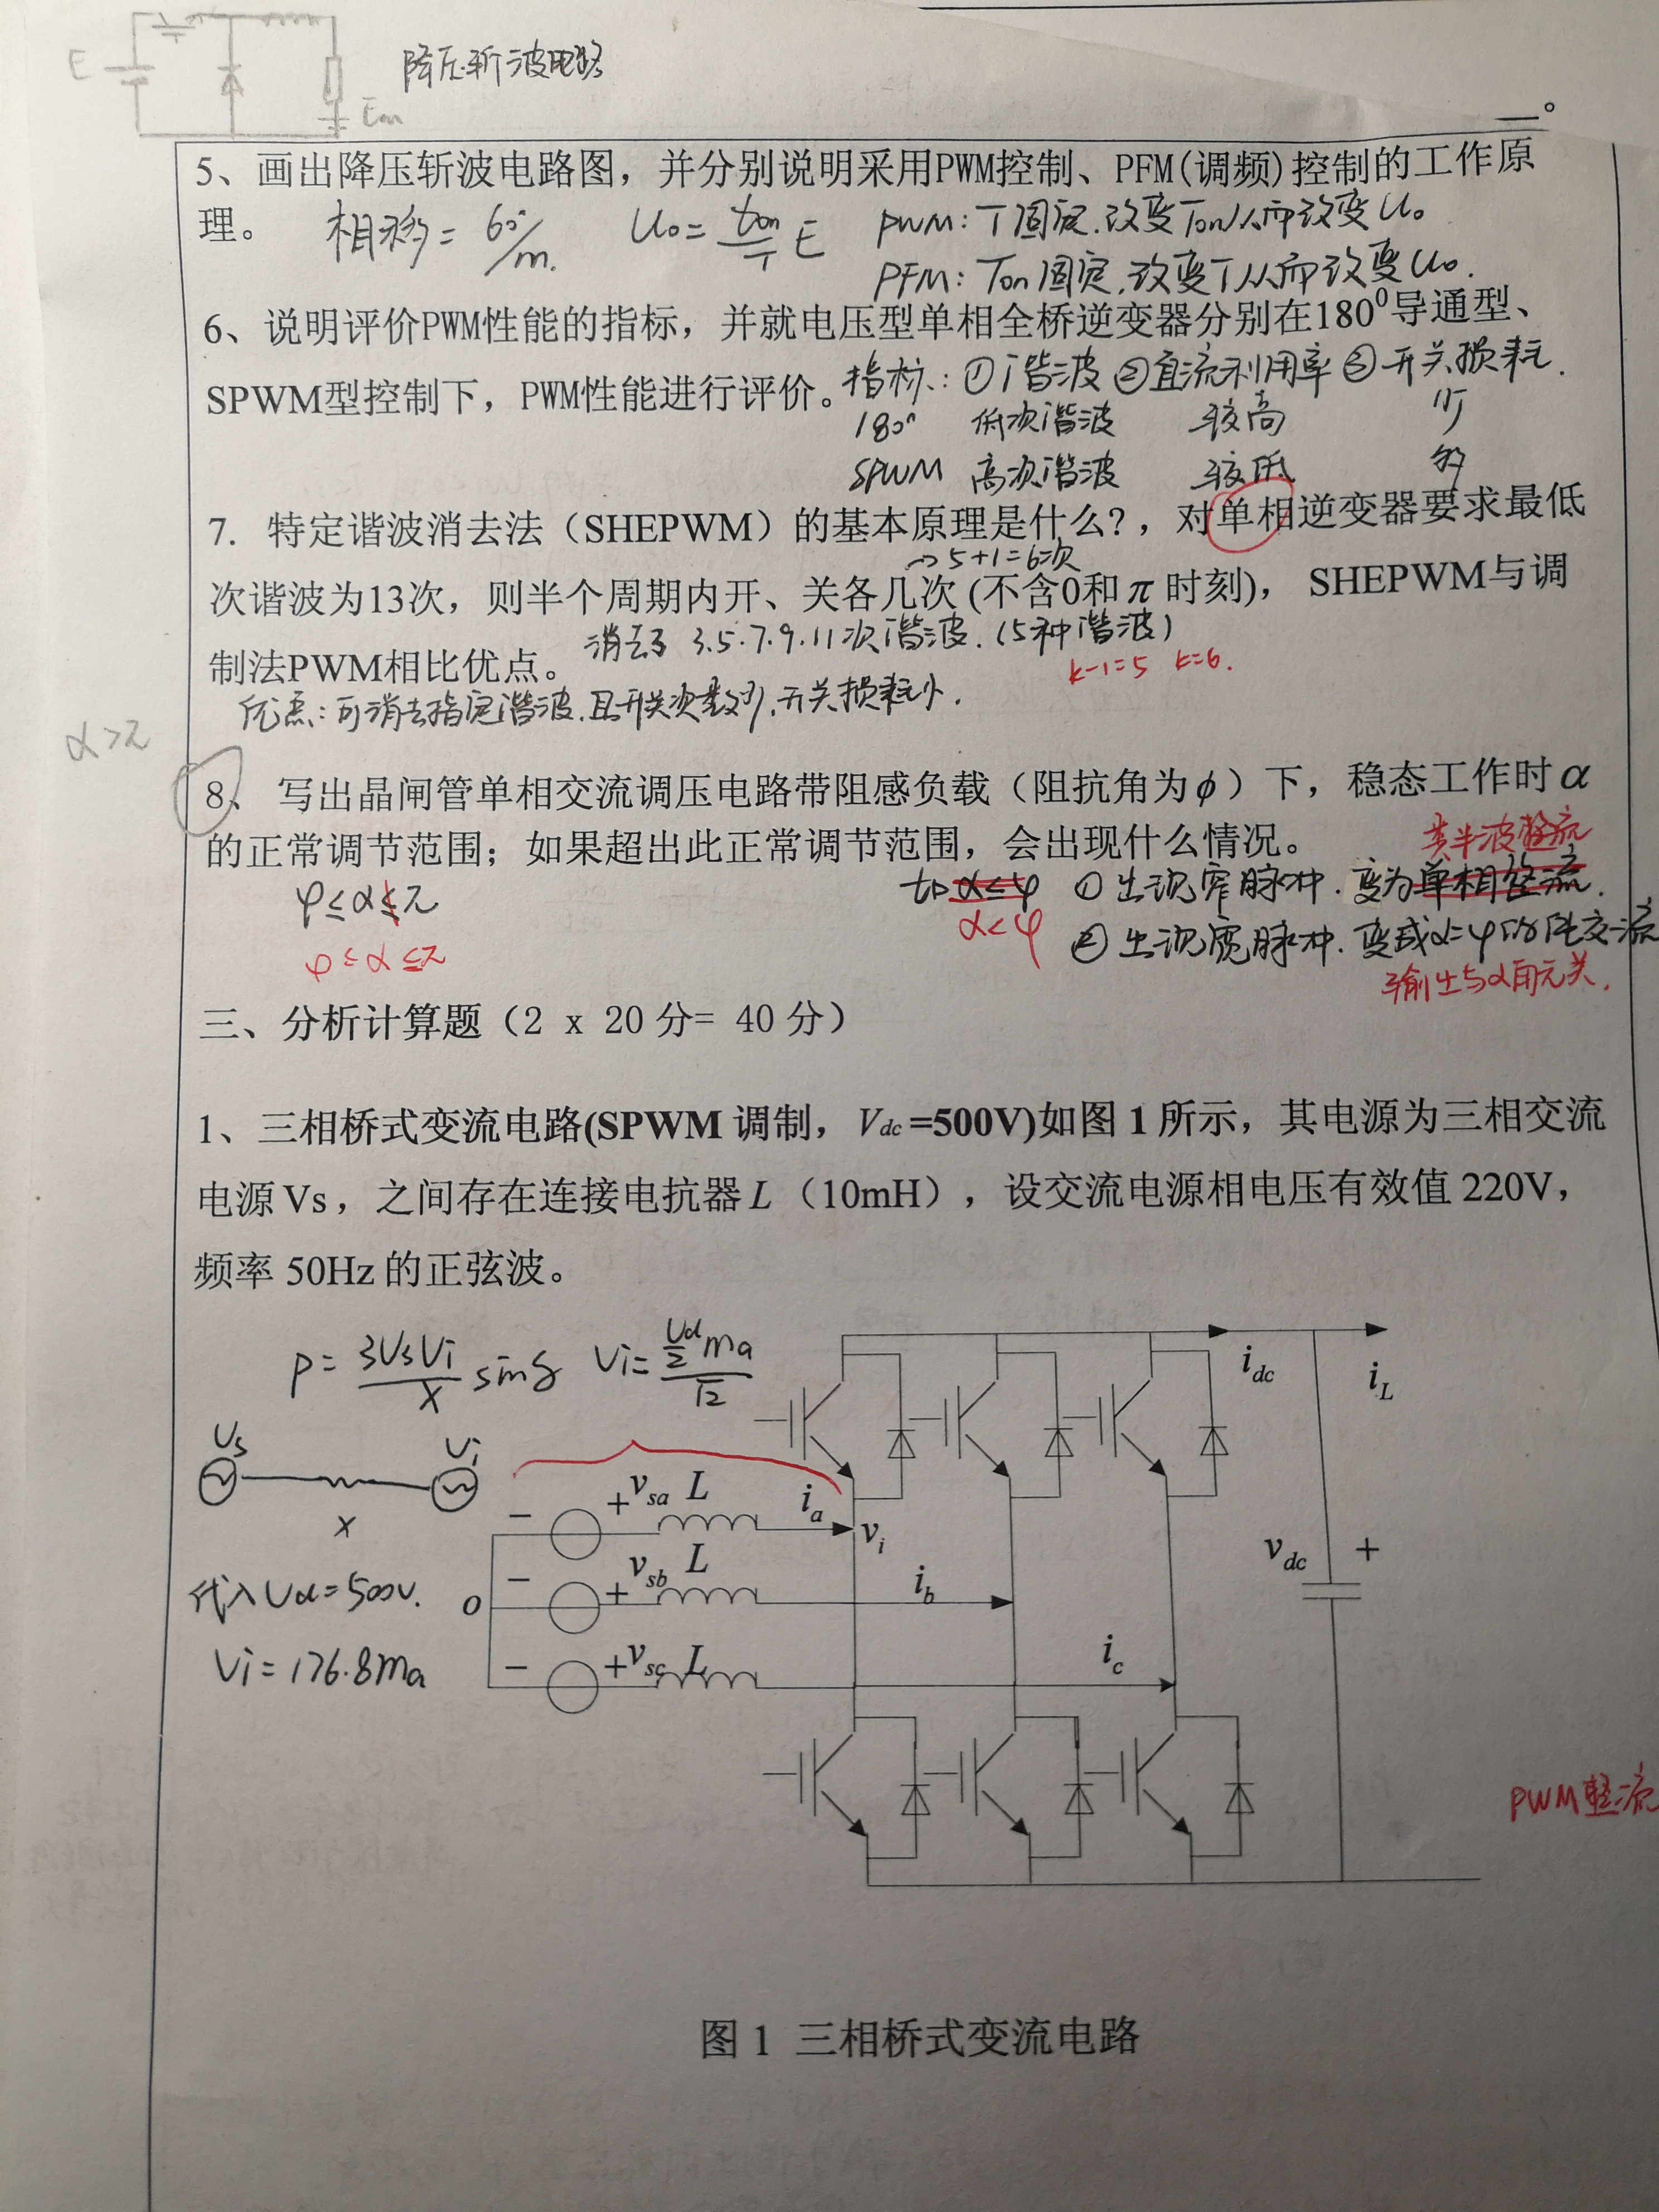 E
降压斩波电路
Em
。
5、画出降压斩波电路图，并分别说明采用PWM控制、PFM(调频)控制的工作原
理。 相移= 60°/m. U₀= ton/T E PWM: T固定.改变Ton从而改变U₀
PFM: Ton固定.改变T从而改变U₀.
6、说明评价PWM性能的指标，并就电压型单相全桥逆变器分别在180⁰导通型、
SPWM型控制下，PWM性能进行评价。 指标: ①谐波 ②直流利用率 ③开关损耗.
180° 低次谐波 较高 少
SPWM 高次谐波 较低 多
7. 特定谐波消去法（SHEPWM）的基本原理是什么?，对单相逆变器要求最低
→5+1=6次
次谐波为13次，则半个周期内开、关各几次 (不含0和π 时刻)， SHEPWM与调
消去了 3.5.7.9.11次谐波.（5种谐波）
制法PWM相比优点。
k-1=5 k=6.
优点:可消去指定谐波.且开关次数少,开关损耗小.
α>π
8、 写出晶闸管单相交流调压电路带阻感负载（阻抗角为ϕ）下，稳态工作时α
的正常调节范围；如果超出此正常调节范围，会出现什么情况。
类半波整流
φ≤α≤π
α≤φ ①出现窄脉冲.变为单相整流.
φ≤α≤π
α<φ ②出现宽脉冲.变成α=φ的纯交流
输出与α角无关.
三、分析计算题（2 x 20分= 40分）
1、三相桥式变流电路(SPWM 调制，Vdc =500V)如图 1 所示，其电源为三相交流
电源 Vs，之间存在连接电抗器 L（10mH），设交流电源相电压有效值 220V，
频率 50Hz 的正弦波。
P= 3VsVi/X sinδ Vi= (Ud/2 ma)/√2
idc
iL
Us
Ui
X
+ vsa L
−
ia
vi
+ vsb L
−
ib
vdc +
代入Ud=500V.
o
+ vsc L
−
ic
Vi=176.8ma
PWM整流
图 1 三相桥式变流电路